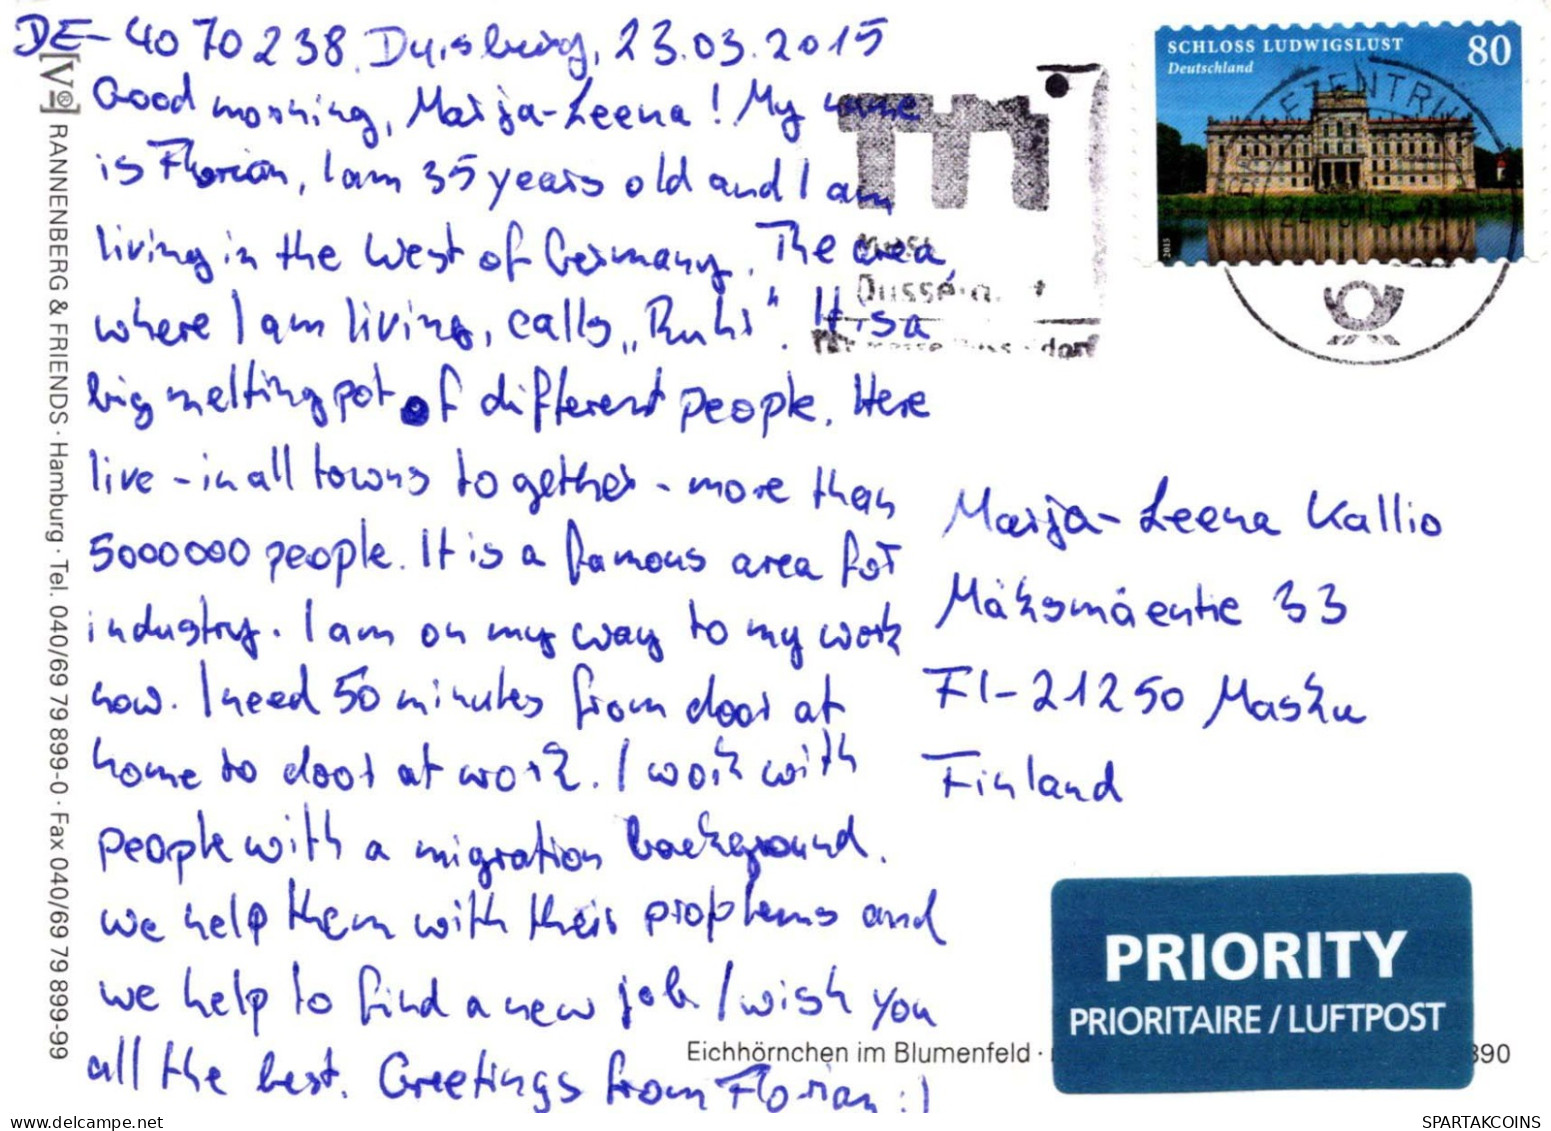 DE-4070238, Duisburg, 23.03.2015
Good morning, Marja-Leena! My name
is Florian, I am 35 years old and I am
living in the West of Germany. The area
where I am living, calls „Ruhr“. It is a
big melting pot of different people. Here
live - in all towns together - more than
5000000 people. It is a famous area for
industry. I am on my way to my work
now. I need 50 minutes from door at
home to door at work. I work with
people with a migration background.
We help them with their proplems and
we help to find a new job. I wish you
all the best. Greetings from Florian :)
RANNENBERG & FRIENDS · Hamburg · Tel. 040/69 79 899-0 · Fax 040/69 79 899-99
SCHLOSS LUDWIGSLUST 80
Deutschland
2015
BRIEFZENTRUM
Marja-Leena Kallio
Mäksmäentie 33
FI-21250 Masku
Finland
PRIORITY
PRIORITAIRE / LUFTPOST
Eichhörnchen im Blumenfeld ·
390
SPARTAKCOINS